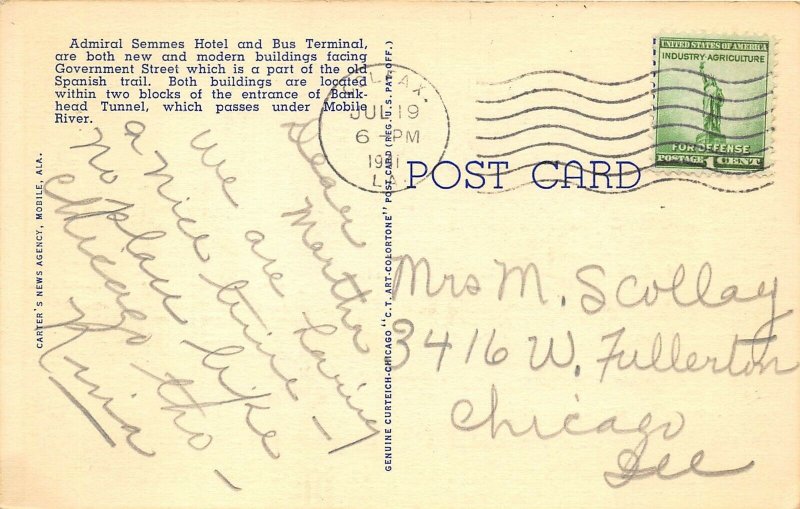 Admiral Semmes Hotel and Bus Terminal,
are both new and modern buildings facing
Government Street which is a part of the old
Spanish trail. Both buildings are located
within two blocks of the entrance of Bank-
head Tunnel, which passes under Mobile
River.
CARTER'S NEWS AGENCY, MOBILE, ALA.
Dear
Martha
We are having
a nice time –
no place like
Chicago tho –
Nina
GENUINE CURTEICH-CHICAGO "C.T. ART-COLORTONE" POST CARD (REG. U.S. PAT. OFF.)
JUL 19
6 - PM
1941
LA.
POST CARD
UNITED STATES OF AMERICA
INDUSTRY·AGRICULTURE
FOR DEFENSE
POSTAGE 1 CENT
Mrs M. Scollay
3416 W. Fullerton
Chicago
Ill